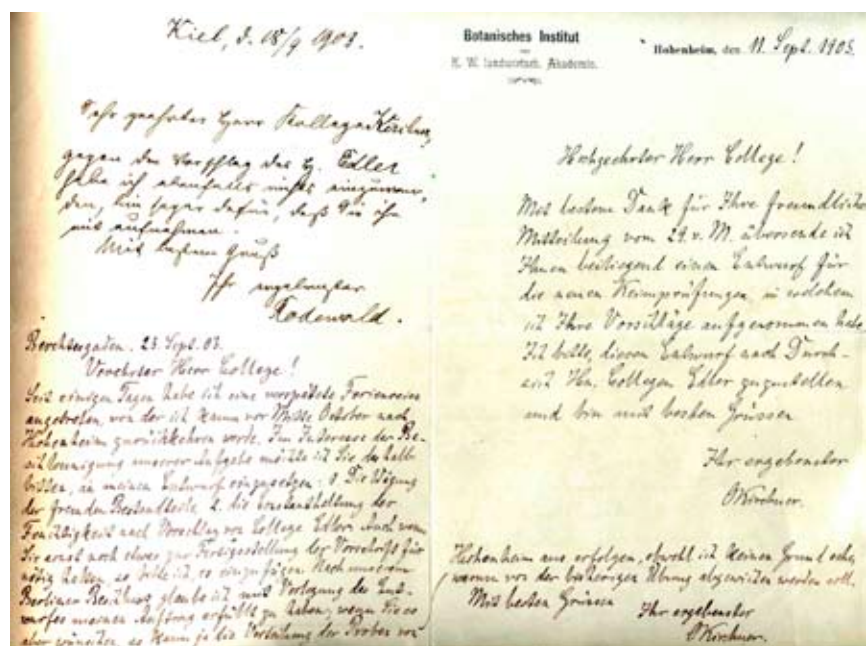 Kiel, d. 18/9 1903.
Sehr geehrter Herr Kollege Kirchner,
gegen den Vorschlag des H. Edler
habe ich ebenfalls nichts einzuwen-
den, bin sogar dafür, daß Sie ihn
mit aufnehmen.
Mit bestem Gruß
Ihr ergebenster
Rodewald.
Berchtesgaden. 23. Sept. 03.
Verehrter Herr College!
Seit einigen Tagen habe ich eine verspätete Ferienreise
angetreten, von der ich kaum vor Mitte October nach
Hohenheim zurückkehren werde. Im Interesse der Be-
schleunigung unserer Aufgabe möchte ich Sie deshalb
bitten, in meinen Entwurf einzusetzen: 1. Die Wägung
der fremden Bestandteile 2. die Constanthaltung der
Feuchtigkeit nach Vorschlag von College Edler. Auch wenn
Sie sonst noch etwas zur Fertigstellung der Vorschrift für
nötig halten, so bitte ich, es einzufügen. Nach unserem
Berliner glaube ich mit Vorlegung des Ent-
wurfes meinen Auftrag erfüllt zu haben; wenn Sie es
aber wünschen, so kann ja die Verteilung der Proben von
Botanisches Institut
K. W. landwirtsch. Akademie.
Hohenheim, den 11. Sept. 1903.
Hochgeehrter Herr College!
Mit bestem Dank für Ihre freundliche
Mitteilung vom 29. v. M. übersende ich
Ihnen beiliegend einen Entwurf für
die neuen Keimprüfungen, in welchem
ich Ihre Vorschläge aufgenommen habe.
Ich bitte, diesen Entwurf nach Durch-
sicht Hn. Collegen Edler zuzustellen
und bin mit besten Grüssen
Ihr ergebenster
OKirchner.
Hohenheim aus erfolgen, obwohl ich keinen Grund sehe,
warum von der bisherigen Übung abgewichen werden soll.
Mit besten Grüssen
Ihr ergebenster
OKirchner.